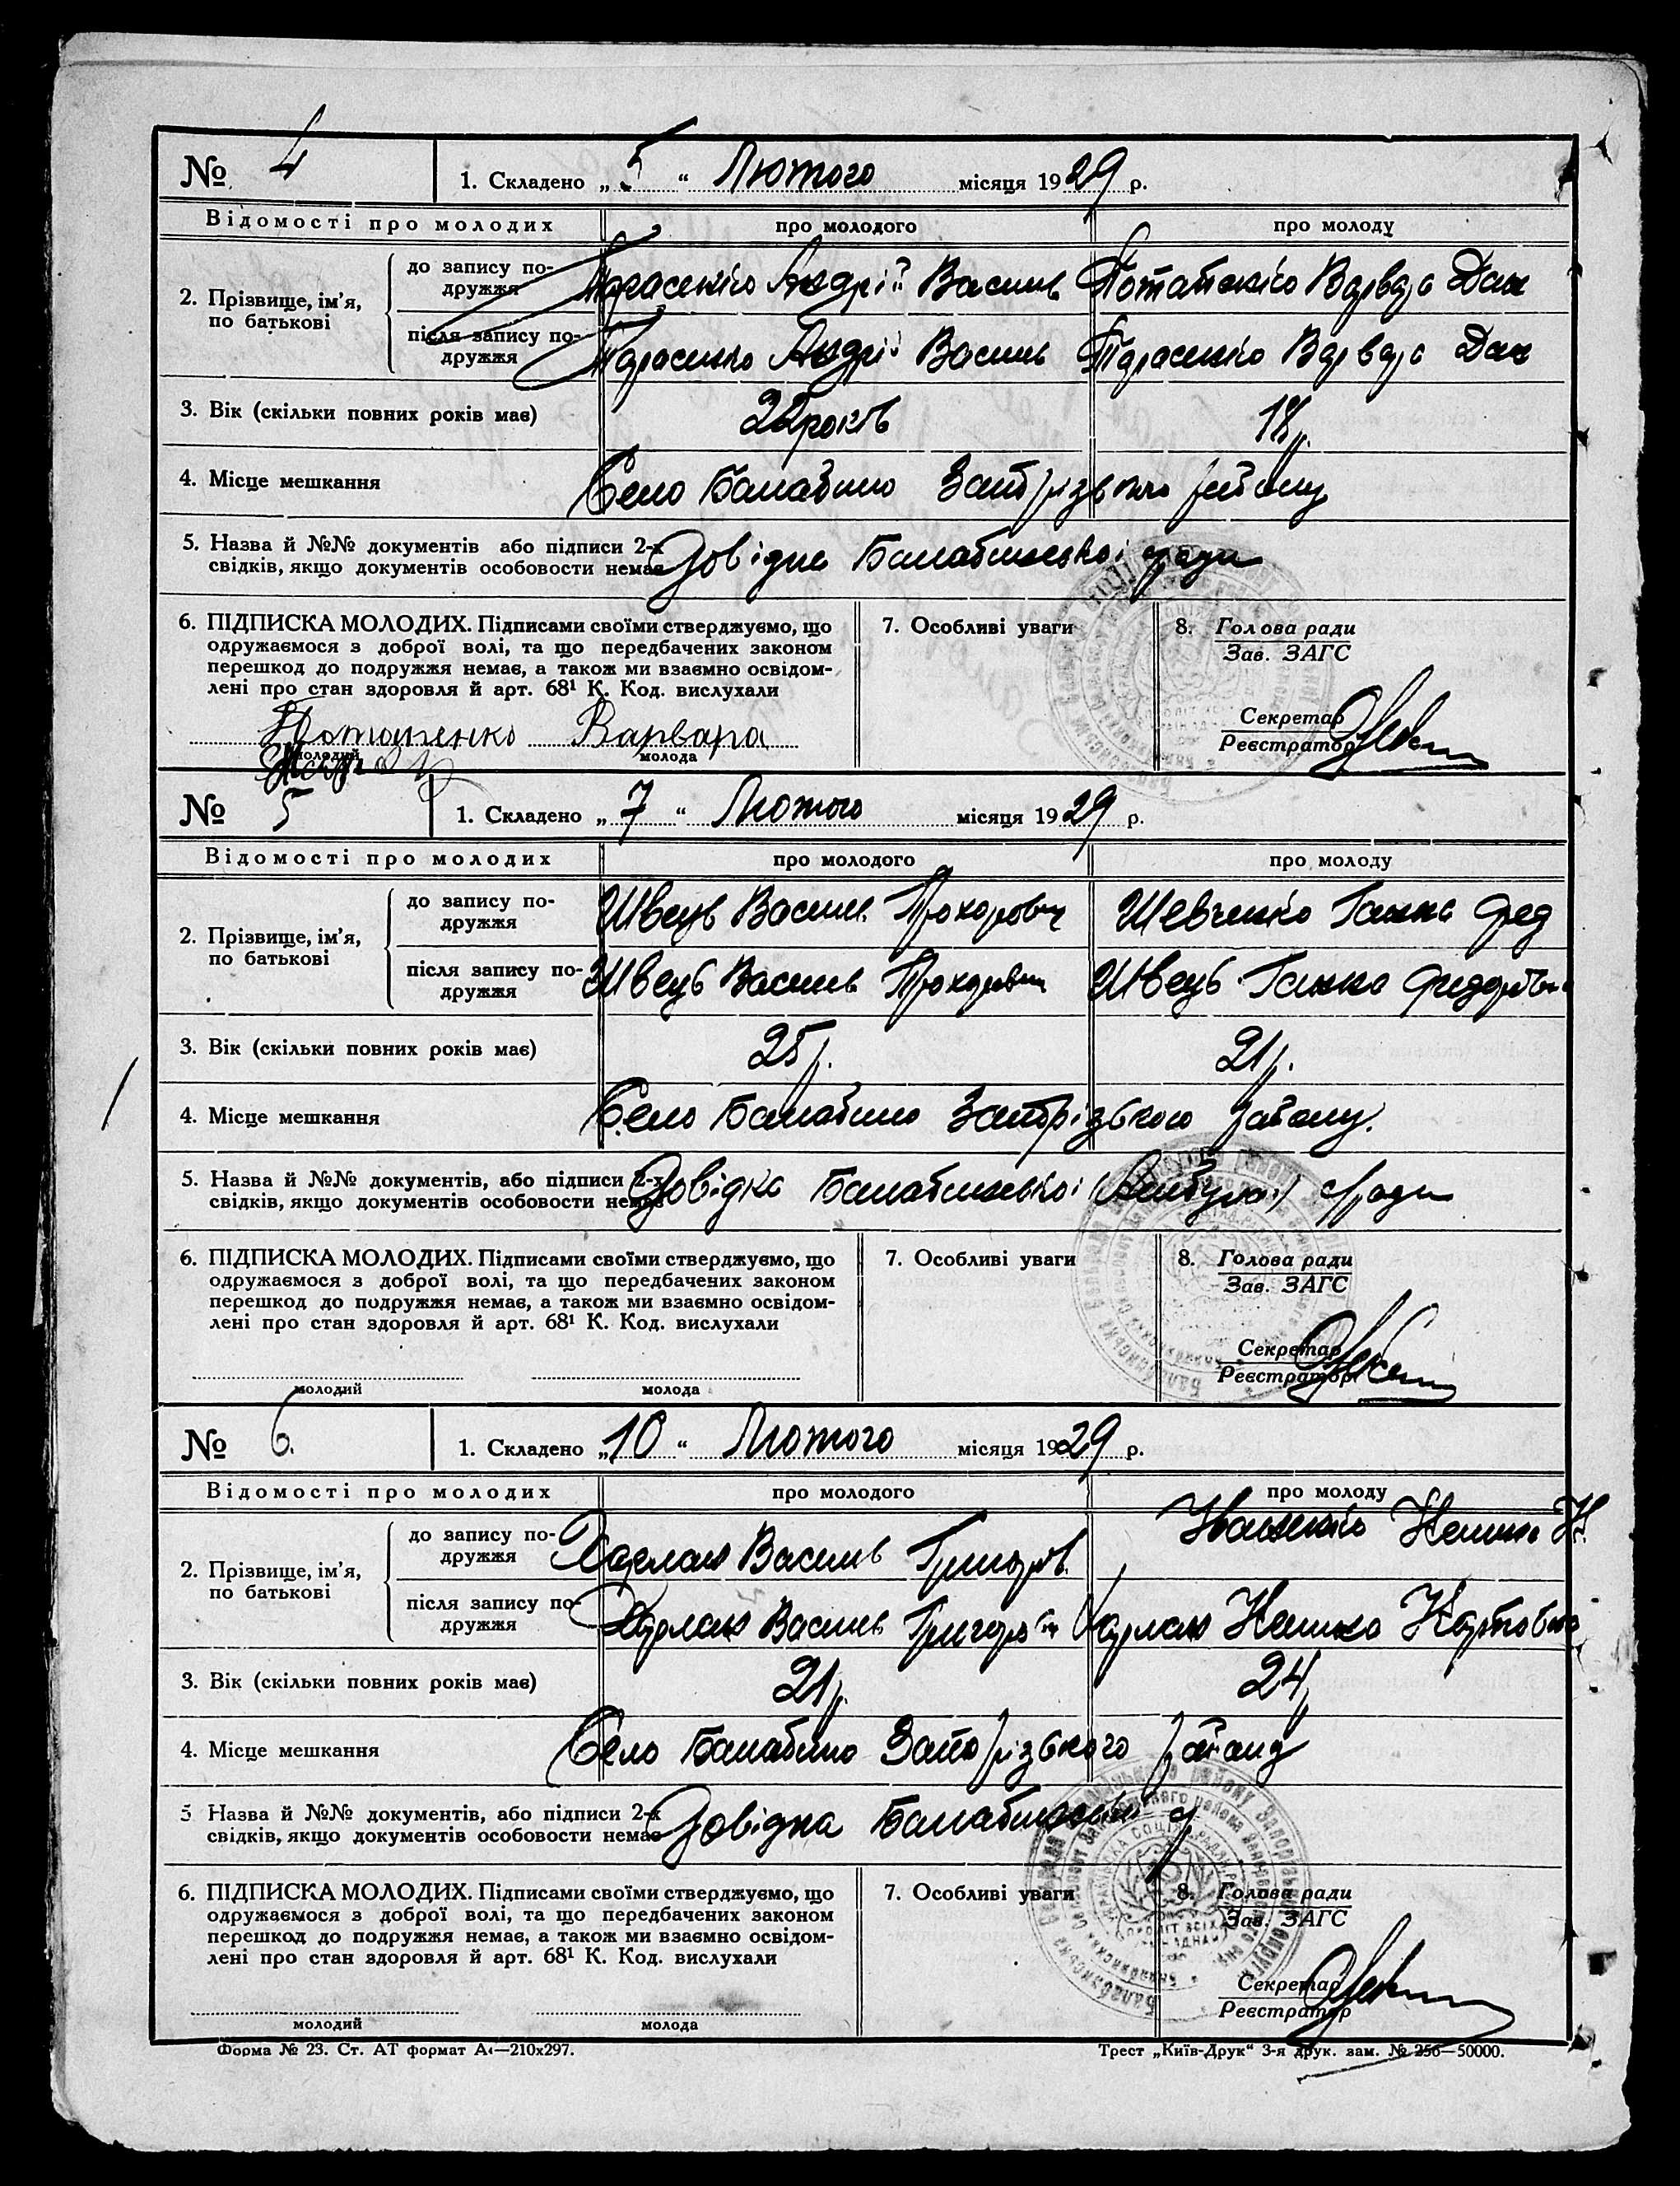 № 4 1. Складено „ 5 “ Лютого місяця 1929 р.
Відомості про молодих про молодого про молоду
2. Прізвище, ім’я, по батькові
до запису подружжя Тарасенко Андрій Василь Потапенко Варвара Дан
після запису подружжя Тарасенко Андрій Василь Тарасенко Варвара Дан
3. Вік (скільки повних років має) 22 років 18 р.
4. Місце мешкання Село Балабино Запорізького району
5. Назва й №№ документів або підписи 2-х Довідка Балабинської с/ради
свідків, якщо документів особовости немає
6. ПІДПИСКА МОЛОДИХ. Підписами своїми стверджуємо, що 7. Особливі уваги 8. Голова ради
одружаємося з доброї волі, та що передбачених законом Зав. ЗАГС
перешкод до подружжя немає, а також ми взаємно освідом-
лені про стан здоровля й арт. 68¹ К. Код. вислухали
Секретар
Потапенко Варвара Реєстратор
молодий молода
№ 5 1. Складено „ 7 “ Лютого місяця 1929 р.
Відомості про молодих про молодого про молоду
2. Прізвище, ім’я, по батькові
до запису подружжя Швець Василь Прохорович Шевченко Ганна Фед
після запису подружжя Швець Василь Прохорович Швець Ганна Федорівна
3. Вік (скільки повних років має) 25 р. 21 р.
4. Місце мешкання Село Балабино Запорізького району.
5. Назва й №№ документів, або підписи 2-х Довідка Балабинської с/ради
свідків, якщо документів особовости немає
6. ПІДПИСКА МОЛОДИХ. Підписами своїми стверджуємо, що 7. Особливі уваги 8. Голова ради
одружаємося з доброї волі, та що передбачених законом Зав. ЗАГС
перешкод до подружжя немає, а також ми взаємно освідом-
лені про стан здоровля й арт. 68¹ К. Код. вислухали
Секретар
Реєстратор
молодий молода
№ 6. 1. Складено „ 10 “ Лютого місяця 1929 р.
Відомості про молодих про молодого про молоду
2. Прізвище, ім’я, по батькові
до запису подружжя Василь Григоров.
після запису подружжя Василь Григорович
3. Вік (скільки повних років має) 21 р. 24 р.
4. Місце мешкання Село Балабино Запорізького району
5 Назва й №№ документів, або підписи 2-х Довідка Балабинської
свідків, якщо документів особовости немає
6. ПІДПИСКА МОЛОДИХ. Підписами своїми стверджуємо, що 7. Особливі уваги 8. Голова ради
одружаємося з доброї волі, та що передбачених законом Зав. ЗАГС
перешкод до подружжя немає, а також ми взаємно освідом-
лені про стан здоровля й арт. 68¹ К. Код. вислухали
Секретар
Реєстратор
молодий молода
Форма № 23. Ст. АТ формат А4—210х297. Трест „Київ-Друк“ 3-я друк. зам. № 256—50000.